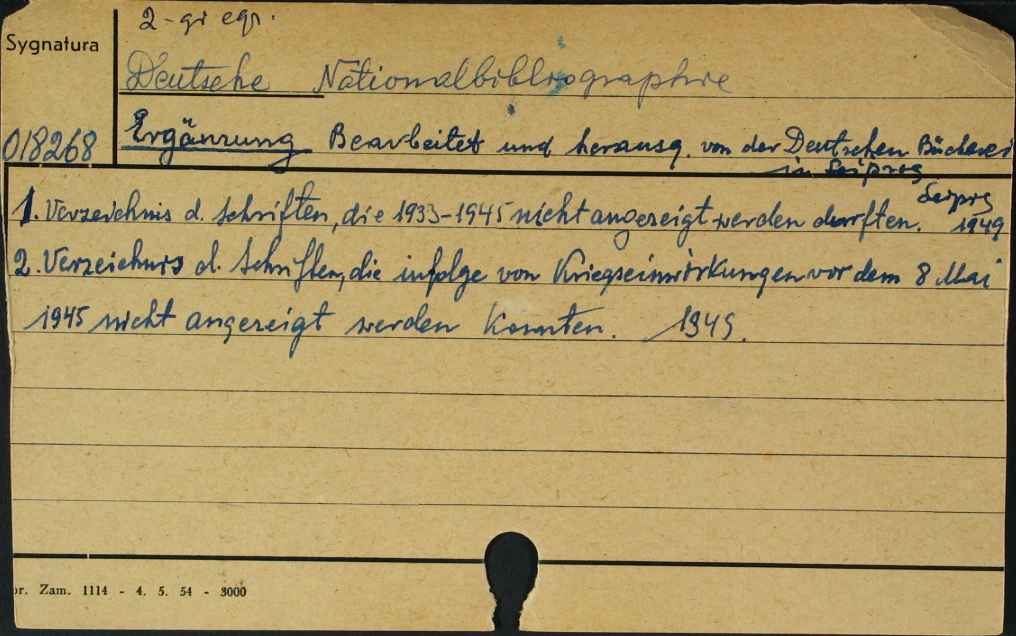 2-gi egz.
Sygnatura
Deutsche Nationalbibliographie
018268
Ergänzung Bearbeitet und herausg. von der Deutschen Bücherei
in Leipzig
1. Verzeichnis d. Schriften, die 1933-1945 nicht angezeigt werden durften. Leipzig 1949
2. Verzeichnis d. Schriften, die infolge von Kriegseinwirkungen vor dem 8 Mai
1945 nicht angezeigt werden konnten. 1949.
or. Zam. 1114 - 4. 5. 54 - 3000